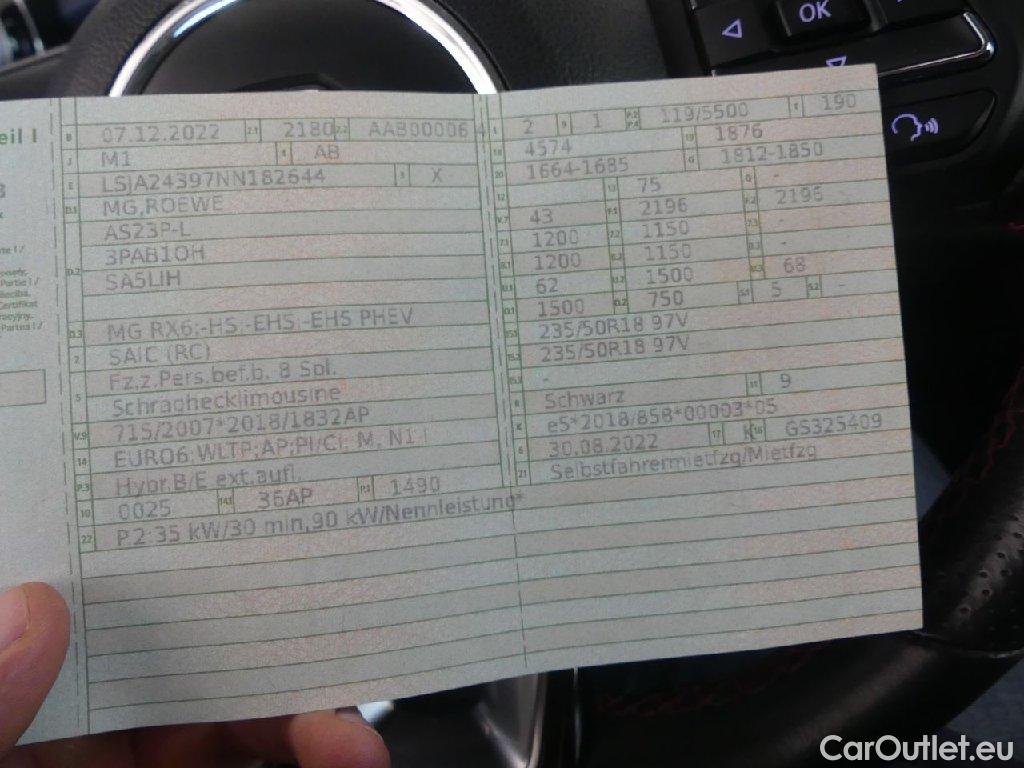 eil I
B 07.12.2022 2.1 2180 2.2 AAB00006 4
J M1 4 AB
E LSJA24397NN182644 3 X
D.1 MG,ROEWE
AS23P-L
3PAB1OH
D.2 SA5LIH
D.3 MG RX6;-HS;-EHS;-EHS PHEV
2 SAIC (RC)
5 Fz.z.Pers.bef.b. 8 Spl.
Schräghecklimousine
V.9 715/2007*2018/1832AP
14 EURO6;WLTP;AP;PI/CI; M, N1 I
P.3 Hybr.B/E ext.aufl.
10 0025 14.1 36AP P.1 1490
22 P.2:35 kW/30 min,90 kW/Nennleistung*
L 2 9 1 P.2 P.4 119/5500 T 190
18 4574 19 1876
20 1664-1685 G 1812-1850
12 - 13 75 Q -
V.7 43 F.1 2196 F.2 2196
7.1 1200 7.2 1150 7.3 -
8.1 1200 8.2 1150 8.3 -
U.1 62 U.2 1500 U.3 68
O.1 1500 O.2 750 S.1 5 S.2 -
15.1 235/50R18 97V
15.2 235/50R18 97V
15.3 -
R Schwarz 11 9
K e5*2018/858*00003*05
6 30.08.2022 17 K 16 GS325409
21 Selbstfahrermietfzg/Mietfzg
OK
CarOutlet.eu